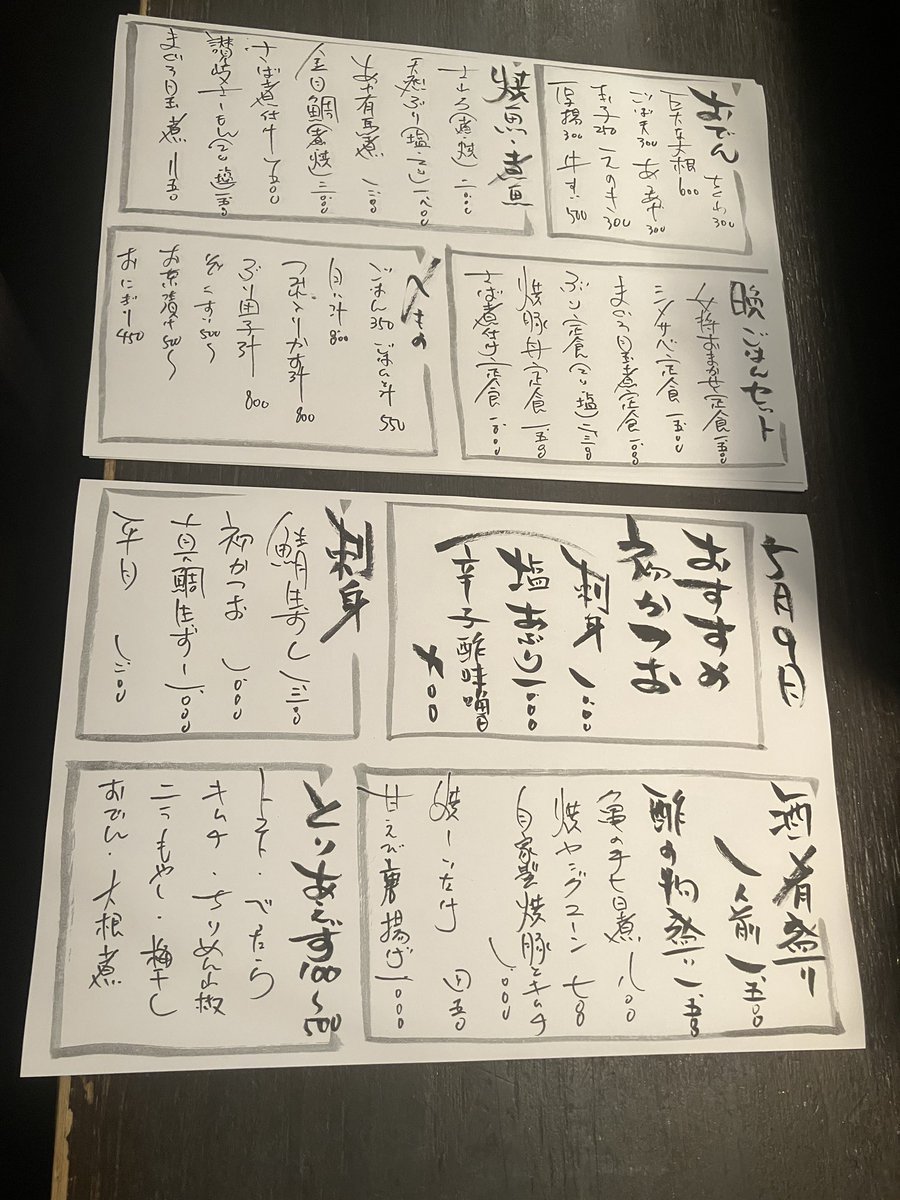 おでん
ちくわ 300
巨大な大根 600
ごぼ天 300 あつあげ 300
玉子 250 えのき 300
厚揚 300 牛すじ 500
焼魚・煮魚
さわら(煮・焼) 二、〇〇〇
天然ぶり(塩・てり) 一、八〇〇
あなご有馬煮
金目鯛(煮・焼)
さば煮付け 一、五〇〇
讃岐サーモン(てり・塩)
まぐろ目玉煮
晩ごはんセット
女将おまかせ定食 一、五〇〇
シメサバ定食 一、五〇〇
まぐろ目玉煮定食
ぶり定食(てり・塩)
焼豚丼定食 一、五〇〇
さば煮付け定食
〆もの
ごはん 350 ごはんと汁 550
貝汁 800
つみれとりかす汁 800
ぶり団子汁 800
ぞうすい 500〜
お茶漬け 500〜
おにぎり 450
5月9日
おすすめ
初かつお
刺身 一、〇〇〇
塩あぶり 一、〇〇〇
辛子酢味噌 七〇〇
刺身
鯖生ずし
初かつお 一、〇〇〇
真鯛生ずし 一、〇〇〇
平目 一、二〇〇
酒肴祭り
一人前 一、五〇〇
酢の物祭り 一、五〇〇
亀の手七日煮
焼ヤングコーン 七〇〇
自家製焼豚とキムチ 一、〇〇〇
焼しいたけ
甘えび唐揚げ 一、〇〇〇
とりあえず 100〜500
トマト・べたら
キムチ・ちりめん山椒
ニラもやし・梅干し
おでん・大根煮